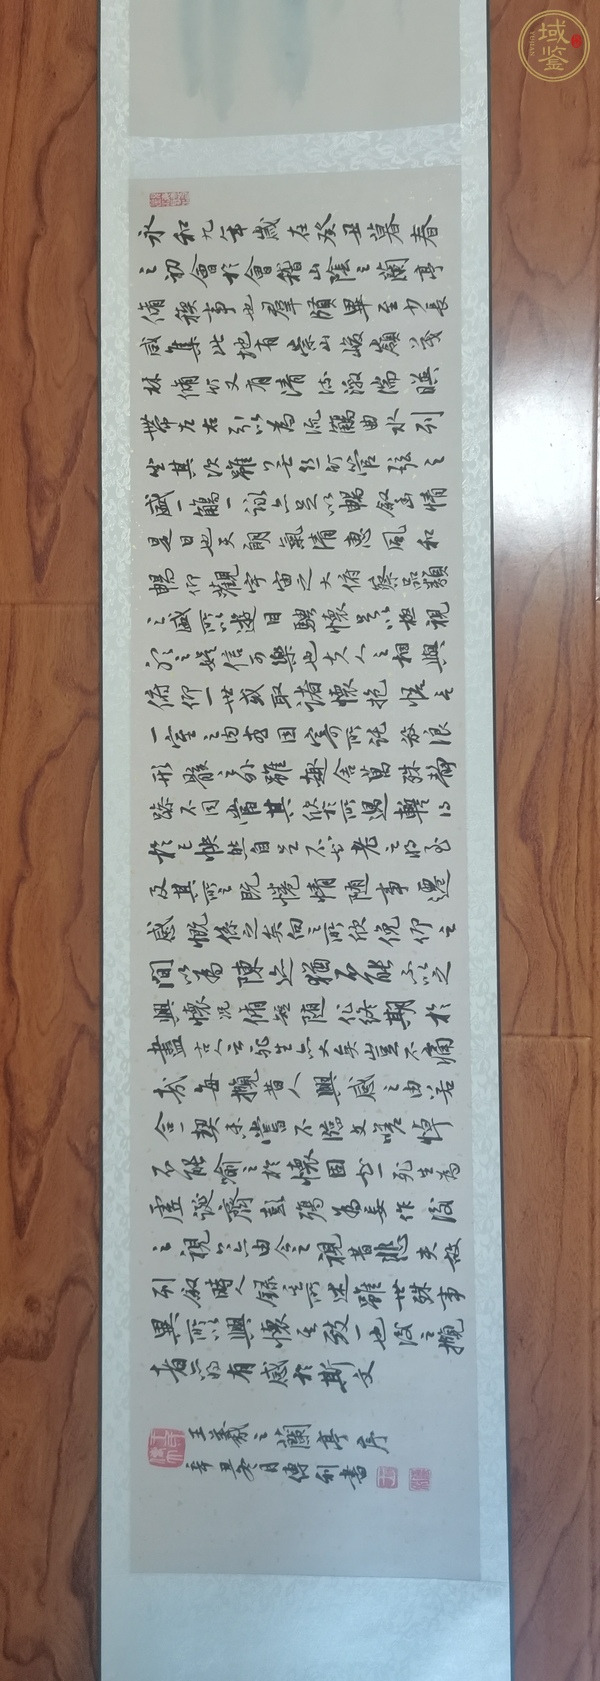 永和九年歲在癸丑暮春
之初會於會稽山陰之蘭亭
脩稧事也羣賢畢至少長
咸集此地有崇山峻嶺茂
林脩竹又有清流激湍暎
帶左右引以為流觴曲水列
坐其次雖無絲竹管弦之
盛一觴一詠亦足以暢敘幽情
是日也天朗氣清惠風和
暢仰觀宇宙之大俯察品類
之盛所以遊目騁懷足以極視
聽之娛信可樂也夫人之相與
俯仰一世或取諸懷抱悟言
一室之內或因寄所託放浪
形骸之外雖趣舍萬殊靜
躁不同當其欣於所遇暫得
於己怏然自足不知老之將至
及其所之既惓情隨事遷
感慨係之矣向之所欣俛仰之
間以為陳迹猶不能不以之
興懷況脩短隨化終期於
盡古人云死生亦大矣豈不痛
哉每攬昔人興感之由若
合一契未嘗不臨文嗟悼
不能喻之於懷固知一死生為
虛誕齊彭殤為妄作後
之視今亦由今之視昔悲夫故
列敘時人錄其所述雖世殊事
異所以興懷其致一也後之攬
者亦將有感於斯文
王羲之蘭亭序
辛丑冬月傳利書
域鉴
YUJIAN